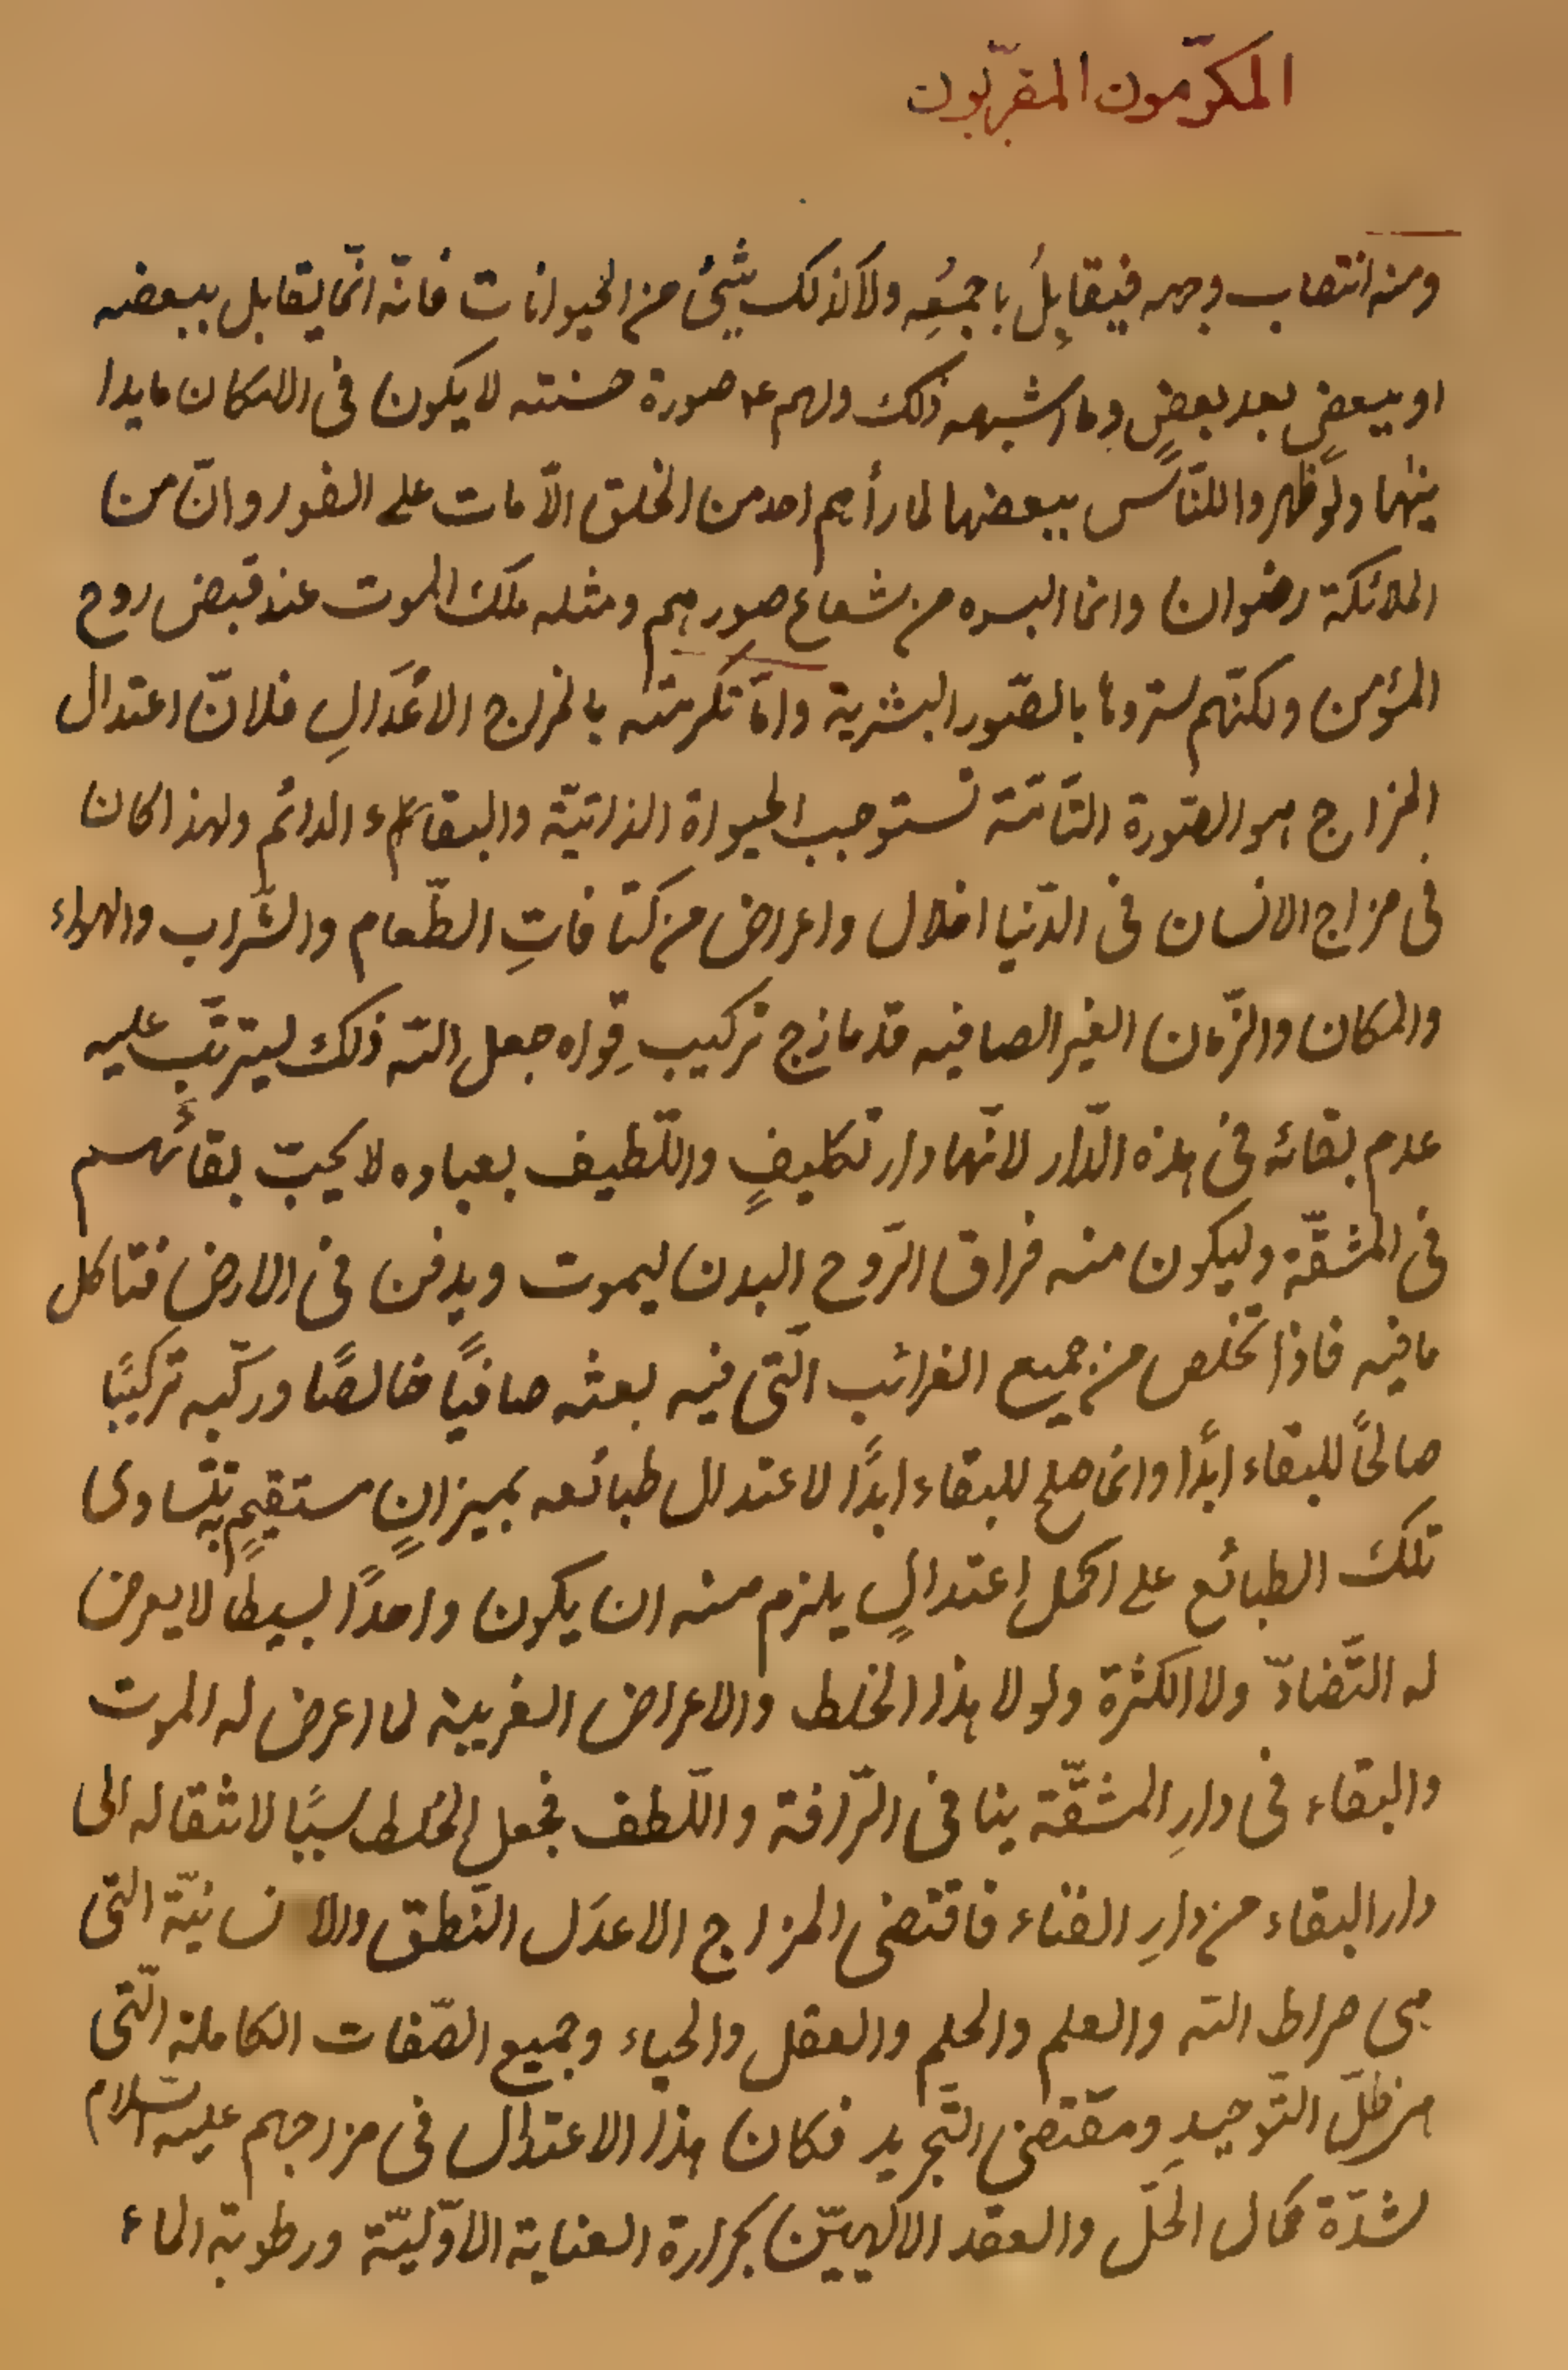 المكرّمون المقرّبون
ومنه انتصاب وجهه فيقابلُ باجمعِه ولا كذلك شيئ من الحيوانات فانّه انّما يقابل ببعضه
او ببعضٍ بعد بعضٍ وما اشبهه ذلك ولهم ع صورة حسنته لا يكون في الامكان مايدا
ينها ولو ظهروا للنّاس ببعضها لما رأهم احد من الخلق الاّ مات على الفور وانّ من
الملائكة رضوان وانما البسوه من شعاع صورهم ومثله ملك الموت عند قبض روح
المؤمن ولكنّهم ستروها بالصّور البشرية وامّا تكرمته بالمزاج الاعْدَالِ فلانّ اعتدال
المزاج هو الصّورة التّامّة تستوجب الحيواة الذاتيّة والبقاء الدائم ولهذا كان
في مزاج الانسان في الدّنيا اخلال واعراض من كثافاتِ الطّعام والشّراب والهواء
والمكان والزّمان الغير الصافيه قد مازج تركيب قِواه جعل الله ذلك ليترتّب عليه
عدم بقائه في هذه الدّار لانّها دار تكليفٍ واللّطيف بعباده لا يحبّ بقائهم
في المشقّة وليكون منه فراق الرّوح البدن ليموت ويدفن في الارض فتاكل
ما فيه فاذا تخلص من جميع الغرائب الّتي فيه بعثه صافيًا خالصًا وركّبه تركيبًا
صالحًا للبقاء ابدًا وانما صلح للبقاء ابدًا لاعتدال طبائعه بميزانٍ مستقيمٍ به تتساوى
تلك الطبائع على اكمل اعتدالٍ يلزم منه ان يكون واحدًا بسيطًا لا يعرض
له التّضادّ ولا الكثرة ولولا هذا الخلط والاعراض الغريبة لما اعرض له الموت
والبقاء في دارِ المشقّة ينافي الرّافة واللّطف فجعل الخلط سببًا لانتقاله الى
دار البقاء من دارِ الفناء فاقتضى المزاج الاعدَل النّطق والانسانيّة التي
هي صراط الله والعلم والحلم والعقل والحياء وجميع الصّفات الكاملة الّتي
هي ظلّ التّوحيدِ ومقتضى التّجريد فكان هذا الاعتدال في مزاجهم عليه السّلام
لشدّة كمال الحلّ والعقد الالهيّين بحرارة العناية الاوّليّة ورطوبة الماء